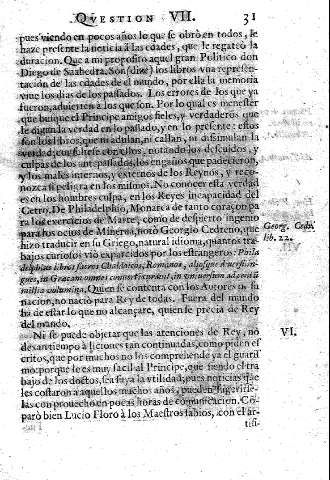 QVESTION VII. 31
pues viendo en pocos años lo que se obrò en todos, se
haze presente la noticia à las edades, que le regateò la
duracion. Que à mi proposito aquel gran Politico don
Diego de Saabedra. Son (dize) los libros vna represen-
tación de las edades de el mundo, por ella la memoria
viue los dias de los passados. Los errores de los que ya
fueron, aduierten à los que son. Por lo qual es menester
que busque el Principe amigos fieles, y verdaderos que
le digan la verdad en lo passado, y en lo presente: estos
son los libros, que ni adulan, ni callan, ni disimulan la
verdad; consultese con ellos, notando los descuidos, y
culpas de los antepassados, los engaños que padecieron,
y los males internos, y externos de los Reynos, y reco-
nozca si peligra en los mismos. No conocer esta verdad
es en los hombres culpa, en los Reyes incapacidad del
Cetro. De Philadelphio, Monarca de tanto coraçon pa
ra los exercicios de Marte, como de despierto ingenio
para los ocios de Minerva, notò Georgio Cedreno, que
hizo traducir en su Griego, natural idioma, quantos tra
bajos curiosos viò esparcidos por los estrangeros: Phila
delphius libros sacros Chaldaicos, Romanos, aliosque
in Græcam omnes
millia voluminum. Quien se contenta con los Autores de su
nacion, no naciò para Rey de todas. Fuera del mundo
ha de estar lo que no alcançare, quien se precia de Rey
del mundo.
Georg. Cedri
lib. 22.
VI.
Ni se puede objetar que las atenciones de Rey, no
dexan tiempo à liciones tan continuadas, como piden es
critos, que por muchos no los comprehende ya el guaris
mo: porque le es muy facil al Principe, que siendo el tra
bajo de los doctos, sea suya la vtilidad; pues noticias que
les costaron à aquellos muchos años, pueden
las con prouecho en pocas horas de comunicacion. Cõ-
parò bien Lucio Floro à los Maestros sabios, con el ar-
tifi-